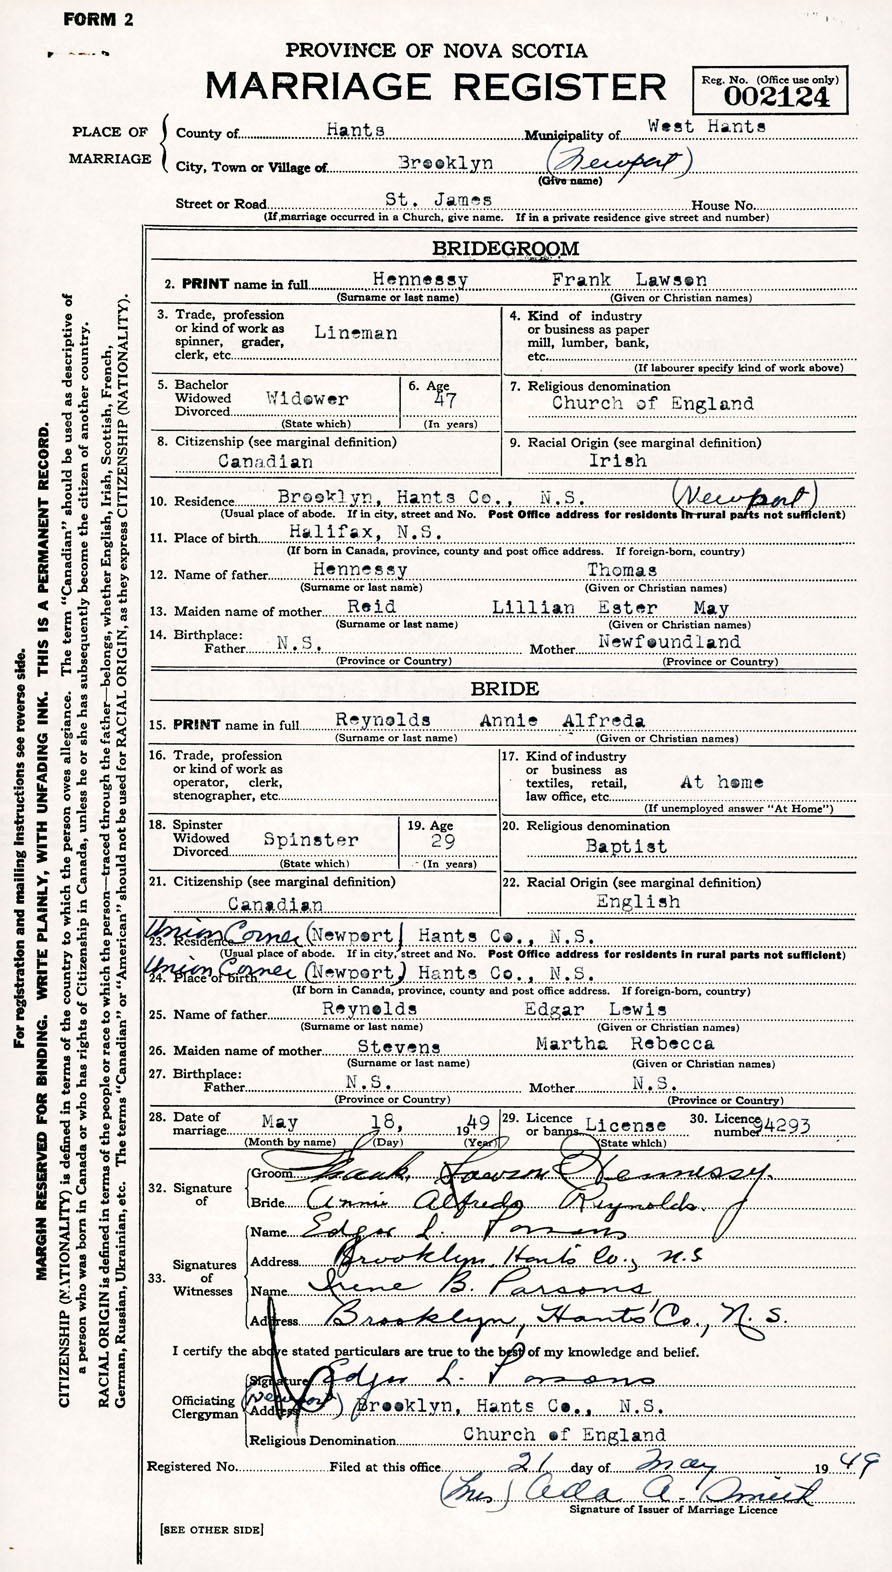 FORM 2
PROVINCE OF NOVA SCOTIA
MARRIAGE REGISTER
Reg. No. (Office use only)
002124
PLACE OF MARRIAGE
County of Hants Municipality of West Hants
City, Town or Village of Brooklyn (Newport)
(Give name)
Street or Road St. James House No.
(If marriage occurred in a Church, give name. If in a private residence give street and number)
BRIDEGROOM
2. PRINT name in full Hennessy Frank Lawson
(Surname or last name) (Given or Christian names)
3. Trade, profession
or kind of work as
spinner, grader,
clerk, etc. Lineman
4. Kind of industry
or business as paper
mill, lumber, bank,
etc.
(If labourer specify kind of work above)
5. Bachelor
Widowed
Divorced Widower
(State which)
6. Age
47
(In years)
7. Religious denomination
Church of England
8. Citizenship (see marginal definition)
Canadian
9. Racial Origin (see marginal definition)
Irish
10. Residence Brooklyn, Hants Co., N.S. (Newport)
(Usual place of abode. If in city, street and No. Post Office address for residents in rural parts not sufficient)
11. Place of birth Halifax, N.S.
(If born in Canada, province, county and post office address. If foreign-born, country)
12. Name of father Hennessy Thomas
(Surname or last name) (Given or Christian names)
13. Maiden name of mother Reid Lillian Ester May
(Surname or last name) (Given or Christian names)
14. Birthplace:
Father N.S. Mother Newfoundland
(Province or Country) (Province or Country)
BRIDE
15. PRINT name in full Reynolds Annie Alfreda
(Surname or last name) (Given or Christian names)
16. Trade, profession
or kind of work as
operator, clerk,
stenographer, etc.
17. Kind of industry
or business as
textiles, retail,
law office, etc. At home
(If unemployed answer "At Home")
18. Spinster
Widowed
Divorced Spinster
(State which)
19. Age
29
(In years)
20. Religious denomination
Baptist
21. Citizenship (see marginal definition)
Canadian
22. Racial Origin (see marginal definition)
English
23. Residence Union Corner (Newport) Hants Co., N.S.
(Usual place of abode. If in city, street and No. Post Office address for residents in rural parts not sufficient)
24. Place of birth Union Corner (Newport) Hants Co., N.S.
(If born in Canada, province, county and post office address. If foreign-born, country)
25. Name of father Reynolds Edgar Lewis
(Surname or last name) (Given or Christian names)
26. Maiden name of mother Stevens Martha Rebecca
(Surname or last name) (Given or Christian names)
27. Birthplace:
Father N.S. Mother N.S.
(Province or Country) (Province or Country)
28. Date of
marriage May 18, 1949
(Month by name) (Day) (Year)
29. Licence
or banns License
(State which)
30. Licence
number 94293
32. Signature of
Groom Frank Lawson Hennessy.
Bride Annie Alfreda Reynolds.
33. Signatures of Witnesses
Name Edgar L. Parsons
Address Brooklyn, Hants Co., N.S
Name Irene B. Parsons
Address Brooklyn, Hants' Co., N.S.
I certify the above stated particulars are true to the best of my knowledge and belief.
Officiating Clergyman
Signature Edgar L. Parsons
Address (Newport) Brooklyn, Hants Co., N.S.
Religious Denomination Church of England
Registered No. Filed at this office 21 day of May 1949
(Mrs) Ada A. Smith
Signature of Issuer of Marriage Licence
[SEE OTHER SIDE]
For registration and mailing instructions see reverse side.
MARGIN RESERVED FOR BINDING. WRITE PLAINLY, WITH UNFADING INK. THIS IS A PERMANENT RECORD.
CITIZENSHIP (NATIONALITY) is defined in terms of the country to which the person owes allegiance. The term "Canadian" should be used as descriptive of
a person who was born in Canada or who has rights of Citizenship in Canada, unless he or she has subsequently become the citizen of another country.
RACIAL ORIGIN is defined in terms of the people or race to which the person—traced through the father—belongs, whether English, Irish, Scottish, French,
German, Russian, Ukrainian, etc. The terms "Canadian" or "American" should not be used for RACIAL ORIGIN, as they express CITIZENSHIP (NATIONALITY).